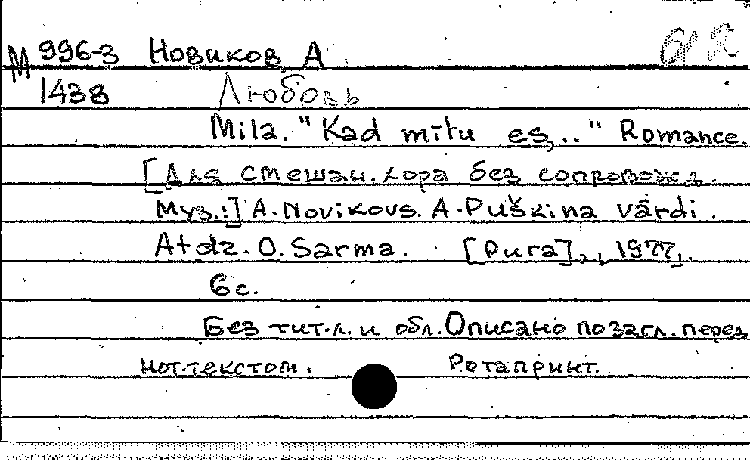 М 996-3 Новиков, А
1438 Любовь
Mila. "Kad mītu es,.." Romance.
[Для смешан. хора без сопровожд.
Муз.:] A. Novikovs. A. Puškina vārdi.
Atdz. O. Sarma. [Рига], , 1977,.
6 с.
Без тит.л. и обл. Описано по загл. перед
нот. текстом. Ротапринт.